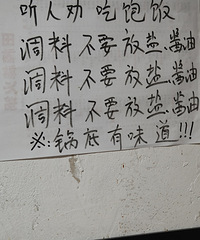 听人劝 吃饱饭
调料不要放盐.酱油
调料不要放盐.酱油
调料不要放盐.酱油
※:锅底有味道!!!